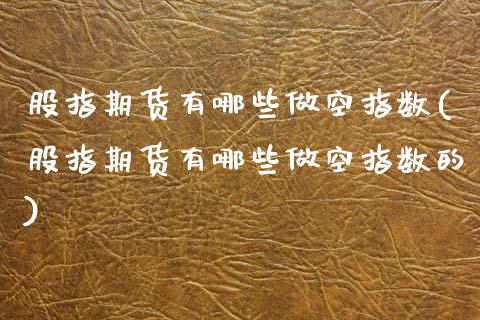 股指期货有哪些做空指数(
股指期货有哪些做空指数的
)